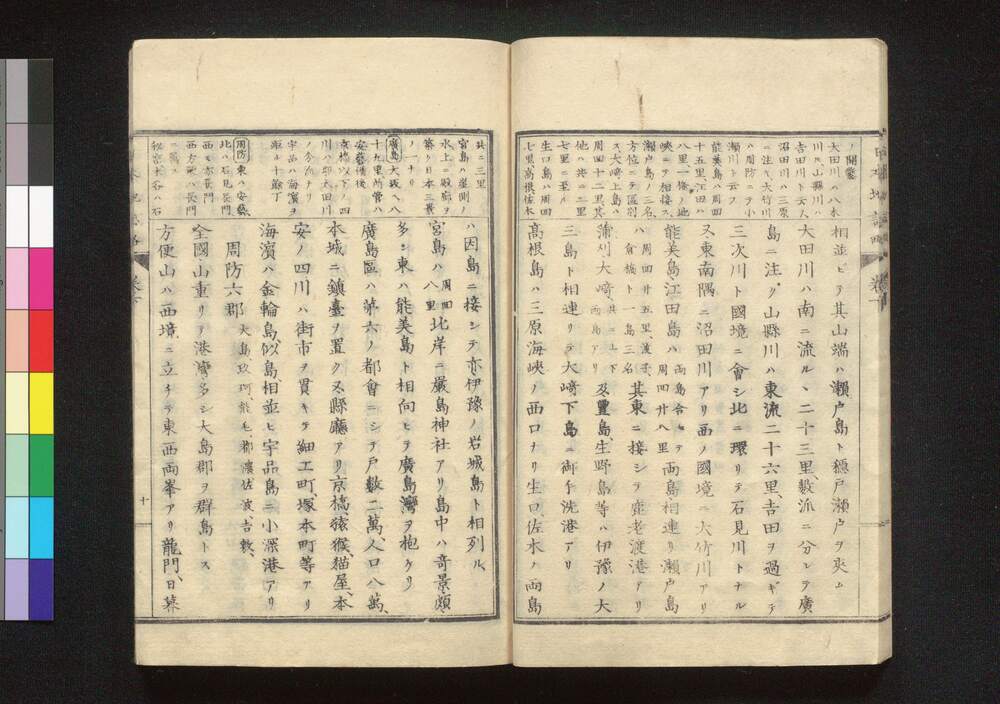 ノ關鍵
大田川ハ八木
川又山縣川ハ
吉田川ト云人
沼田川ハ三原
ニ注ギ大竹川
ハ周防ニテ小
瀬川ト云フ
能美島ハ周回
十五里江田ハ
八里一條ノ地
峽ニテ相接ス
瀬戸島ノ三名
方位ニテ區別
ス大崎上島ハ
周回十二里其
他ハ共ニ二里
七里ニ至ル
生口島ハ周回
七里高根佐木
相並ビテ其山端ハ瀬戸島ト穩戸瀬戸ヲ夾ム
大田川ハ南ニ流ルヽ二十三里、數派ニ分レテ廣
島ニ注グ山縣川ハ東流二十六里、吉田ヲ過ギテ
三次川ト國境ニ會シ北ニ環リテ石見川トナル
又東南隅ニ沼田川アリ西ノ國境ニ大竹川アリ
能美島江田島ハ兩島合セテ周回廿八里兩島相連リ瀬戸島
ハ周回廿五里、渡子、倉橋ト一島三名其東ニ接シテ鹿老渡港アリ
蒲刈大﨑共ニ上下兩島アリ及豐島、生野島等ハ伊豫ノ大
三島ト相連リテ大﨑下島ニ御手洗港アリ
高根島ハ三原海峽ノ西口ナリ生口、佐木ノ兩島
共ニ三里
宮島ハ崖側ノ
水上ニ殿廊ヲ
築ク日本三景
ノ一ナリ
廣島 大坂ヘ八
十九里所管ハ
安藝備後
京橋以下ノ四
川ハ即大田川
ノ分派ナリ
宇品ハ海濱ヲ
距ル十餘丁
周防 東ハ安藝
北ハ石見長門
西モ亦長門
西方東ハ長門
ハ因島ニ接シテ亦伊豫ノ岩城島ト相列ル
宮島ハ周回八里北岸ニ嚴島神社アリ島中ハ奇景、頗
多シ東ハ能美島ト相向ヒテ廣島灣ヲ抱ケリ
廣島區ハ第六ノ都會ニシテ戸數二萬、人口八萬、
本城ニ鎭臺ヲ置ク又縣廳アリ京橋、猿猴、猫屋、本
安ノ四川ハ街市ヲ貫キテ細工町、塚本町等アリ
海濱ハ金輪島、似島、相並ヒ宇品島ニ小深港アリ
周防六郡 大島、玖珂、熊毛、都濃、佐波、吉敷
全國山重リテ港灣多シ大島郡ヲ群島トス
方便山ハ西境ニ立チテ東西兩峯アリ龍門、日暮
十